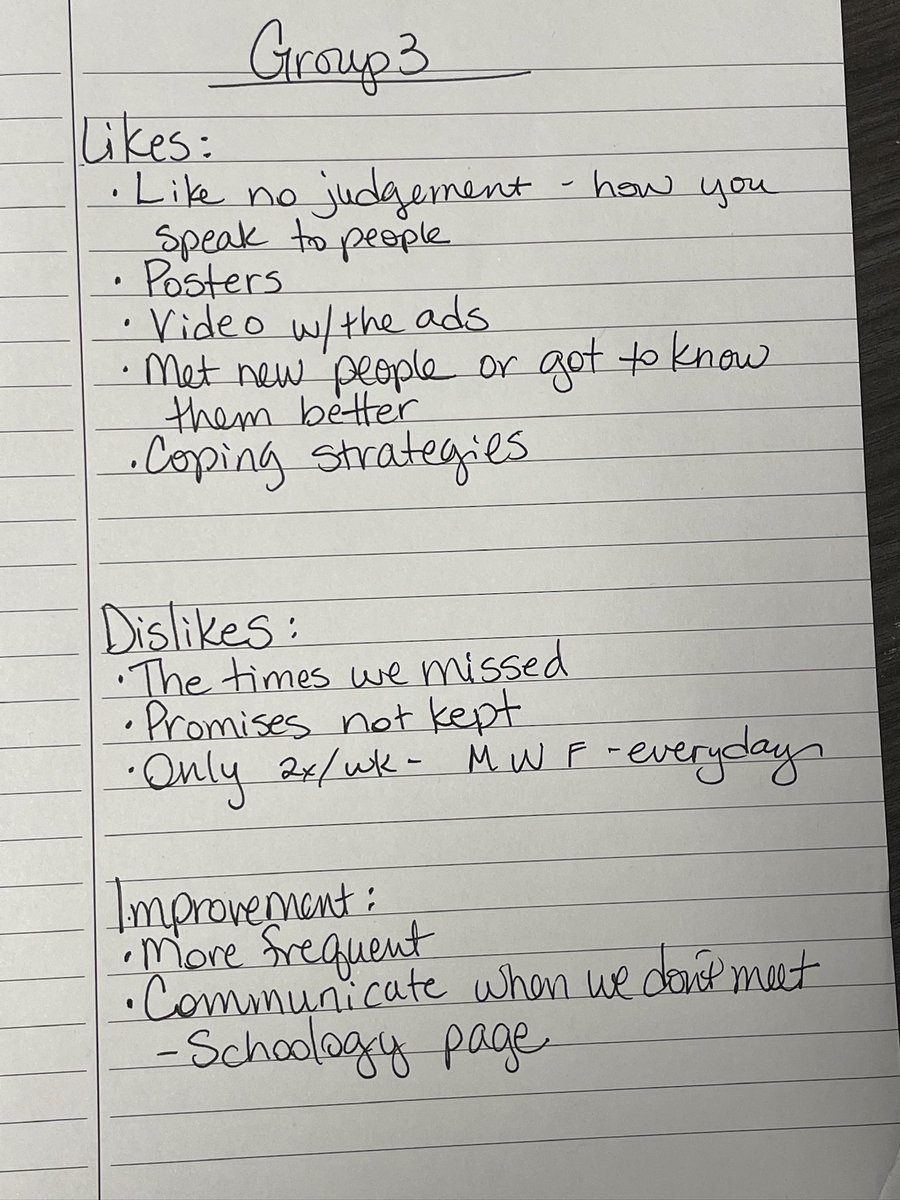 Group 3
Likes:
· Like no judgement - how you
speak to people
· Posters
· Video w/the ads
· Met new people or got to know
them better
· Coping strategies
Dislikes:
· The times we missed
· Promises not kept
· Only 2x/wk - M W F - everyday
Improvement:
· More frequent
· Communicate when we don't meet
- Schoology page